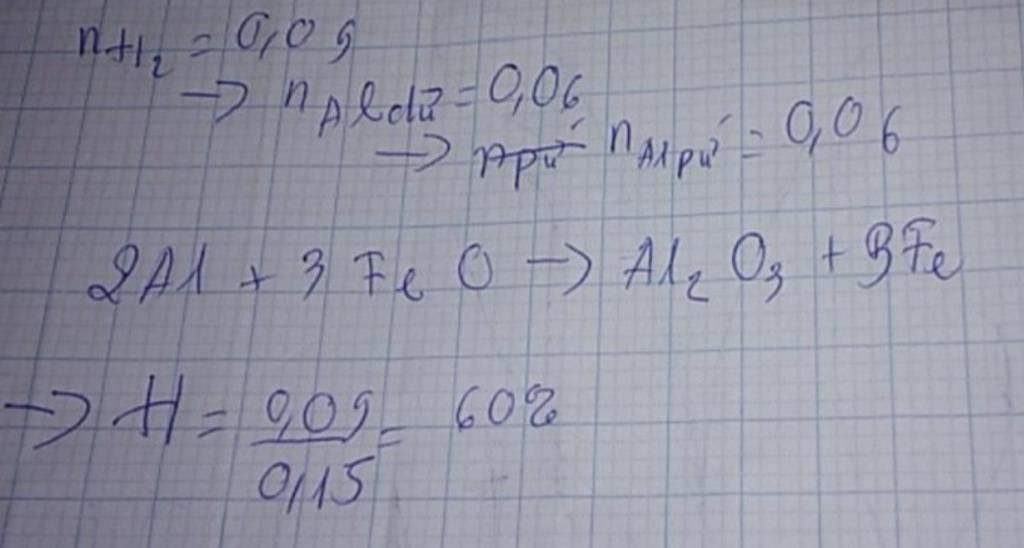 nH₂ = 0,09
→ nAl dư = 0,06
→ nAl pư = 0,06
2Al + 3FeO → Al₂O₃ + 3Fe
→ H = 0,09/0,15 = 60%